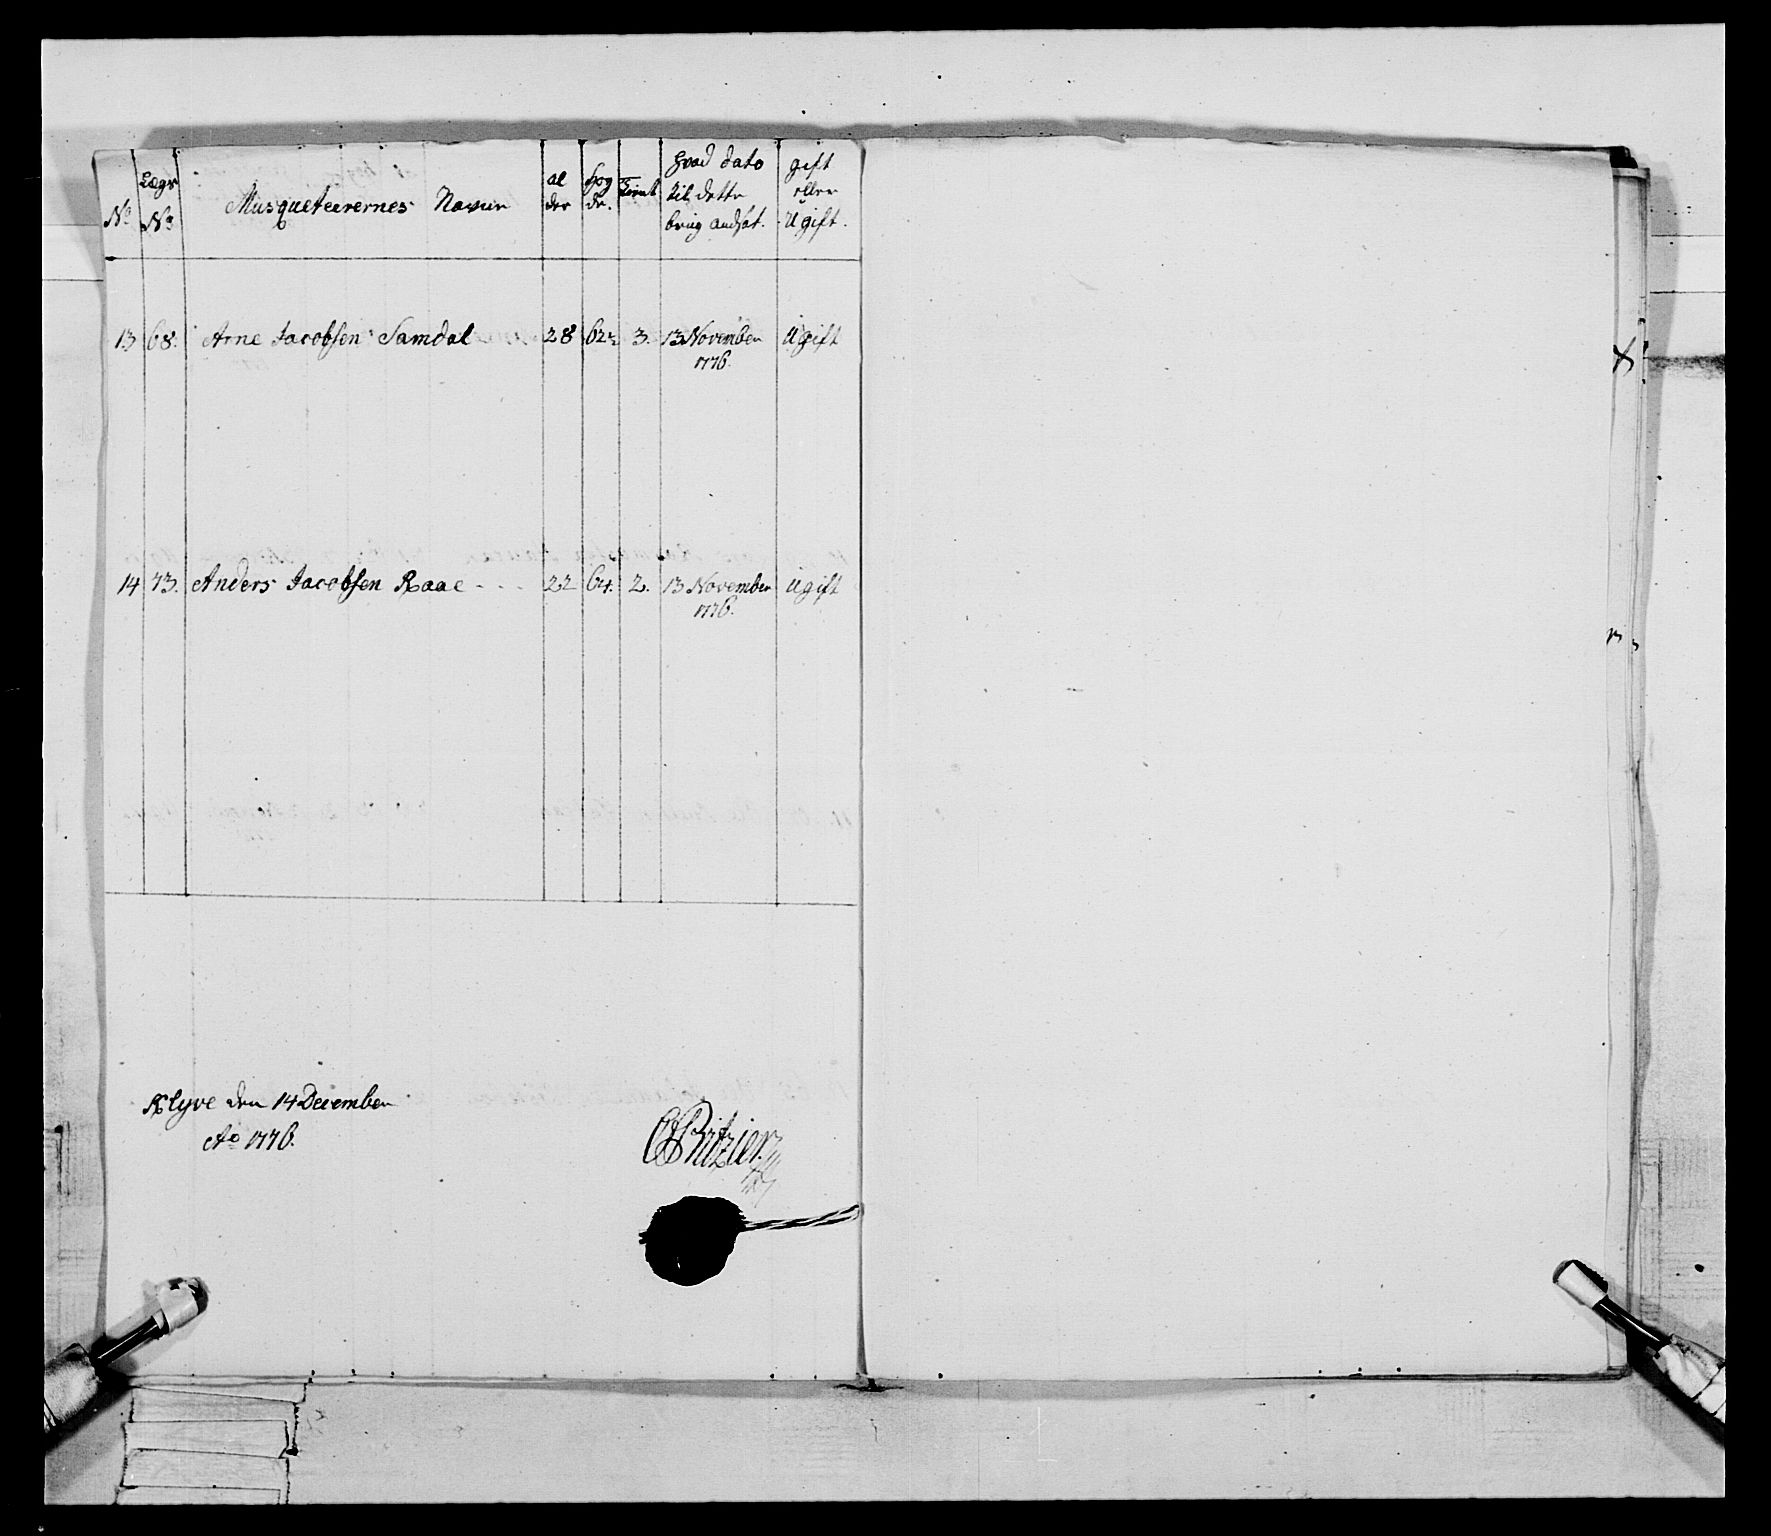 No Lægs No Musqueteerernes Navne al der Høg de. Tient Hvad dato til dette brug andsat. gift eller Ugift.
13 68. Arne Jacobsen Samdal 28 62½ 3. 13 November 1776. Ugift
14 73. Anders Jacobsen Raae - - - 22 64. 2. 13 November 1776. Ugift
Klyve den 14 December
Ao 1776.
Pritzier